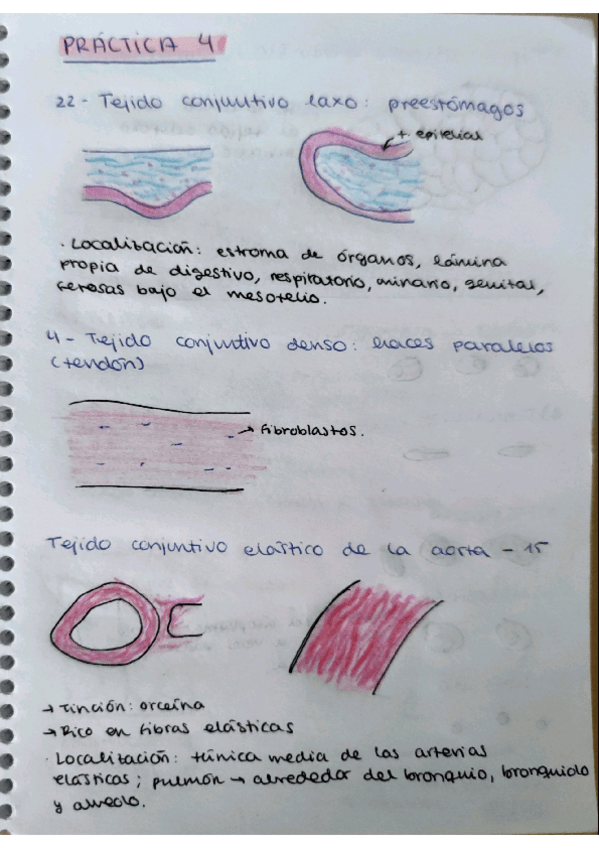 PRÁCTICA 4
22 - Tejido conjuntivo laxo: preestómagos
t. epitelial
· Localización: estroma de órganos, lámina
propia de digestivo, respiratorio, urinario, genital,
serosas bajo el mesotelio.
4 - Tejido conjuntivo denso: haces paralelos
(tendón)
→ Fibroblastos.
Tejido conjuntivo elástico de la aorta - 15
→ Tinción: orceína
→ Rico en fibras elásticas
· Localización: túnica media de las arterias
elásticas; pulmón → alrededor del bronquio, bronquiolo
y alveolo.